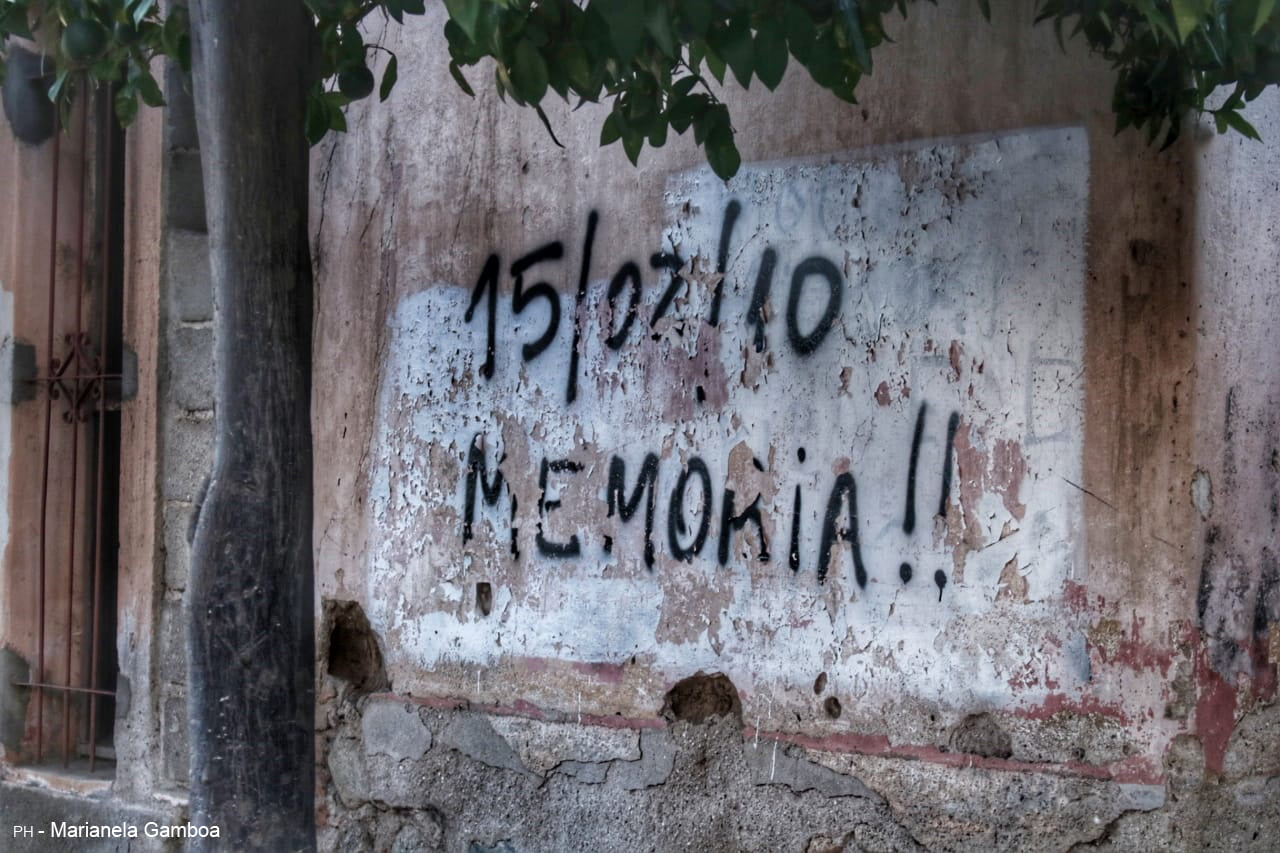 15/07/10
MEMORiA!!
PH - Marianela Gamboa